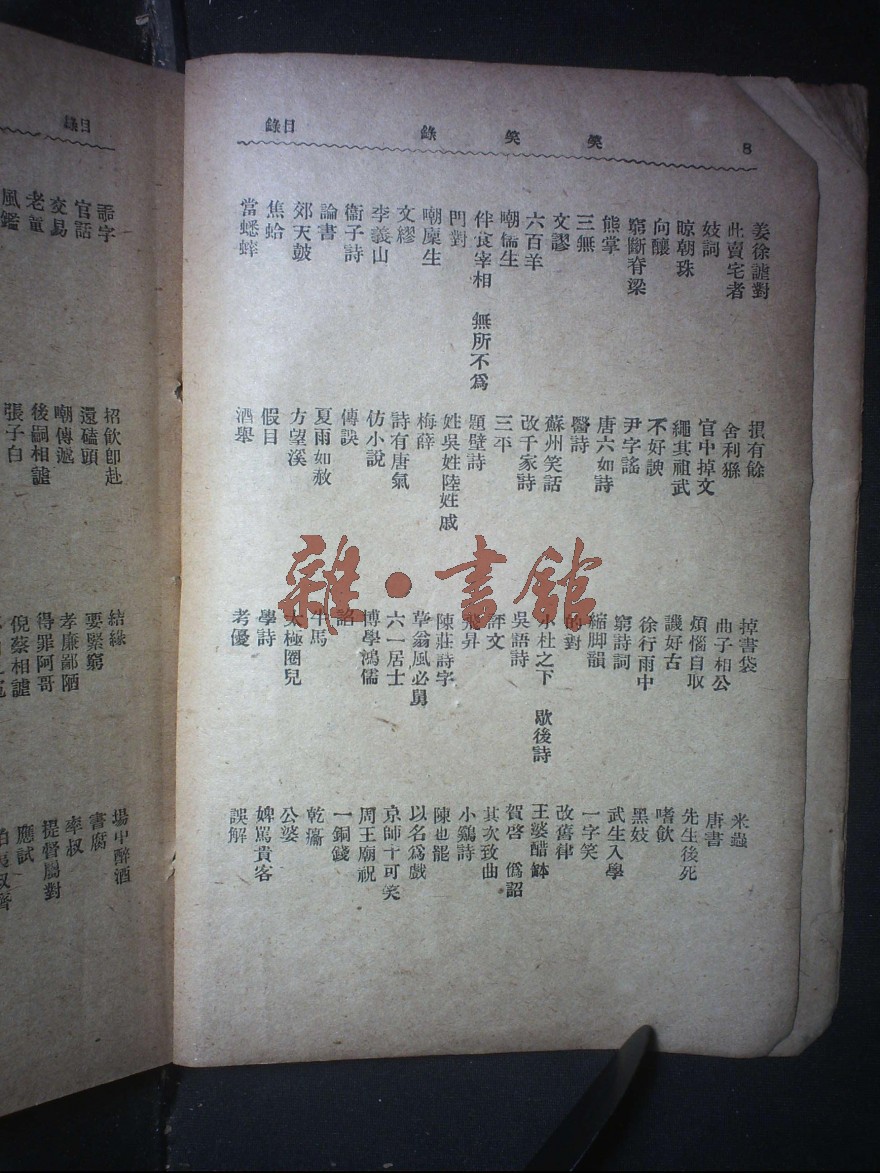 8
笑笑錄
目錄
姜徐謔對
此賣宅者
妓詞
晾朝珠
向釀
窮斷脊梁
熊掌
三無
文謬
六百羊
嘲儒生
伴食宰相　無所不爲
門對
嘲麋生
文繆
李義山
衞子詩
論書
郊天鼓
焦蛤
當蟋蟀
損有餘
舍利猻
官中掉文
繩其祖武
不好諛
尹字謠
唐六如詩
醫詩
蘇州笑話
改千家詩
三平
題壁詩
姓吳姓陸姓戚
梅薛
詩有唐氣
仿小說
傳訣
夏雨如赦
方望溪
假目
酒舉
掉書袋
曲子相公
煩惱自取
譏好古
徐行雨中
窮詩詞
縮脚韻
的對
小杜之下　歇後詩
吳語詩
評文
飛昇
陳莊詩字
草翁風必舅
六一居士
博學鴻儒
牛馬
太極圈兒
學詩
考優
米蟲
唐書
先生後死
嗜飲
黑妓
武生入學
一字笑
改舊律
王婆醋缽
賀啓　僞詔
其次致曲
小鷄詩
陳也罷
以名爲戲
京師十可笑
周王廟祝
一銅錢
乾癟
公婆
婢罵貴客
誤解
目錄
官話
交易
老童
風鑑
招飲卽赴
還磕頭
嘲傳遞
後嗣相謔
張子白
結緣
要緊窮
孝廉鄙陋
得罪阿哥
倪蔡相謔
場中醉酒
書腐
牽叔
提督屬對
應試
雜·書館